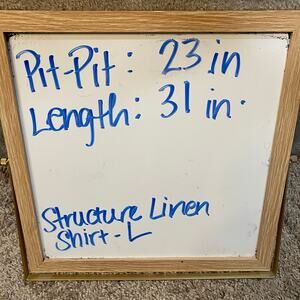 Pit-Pit: 23 in
Length: 31 in.
Structure Linen
Shirt-L